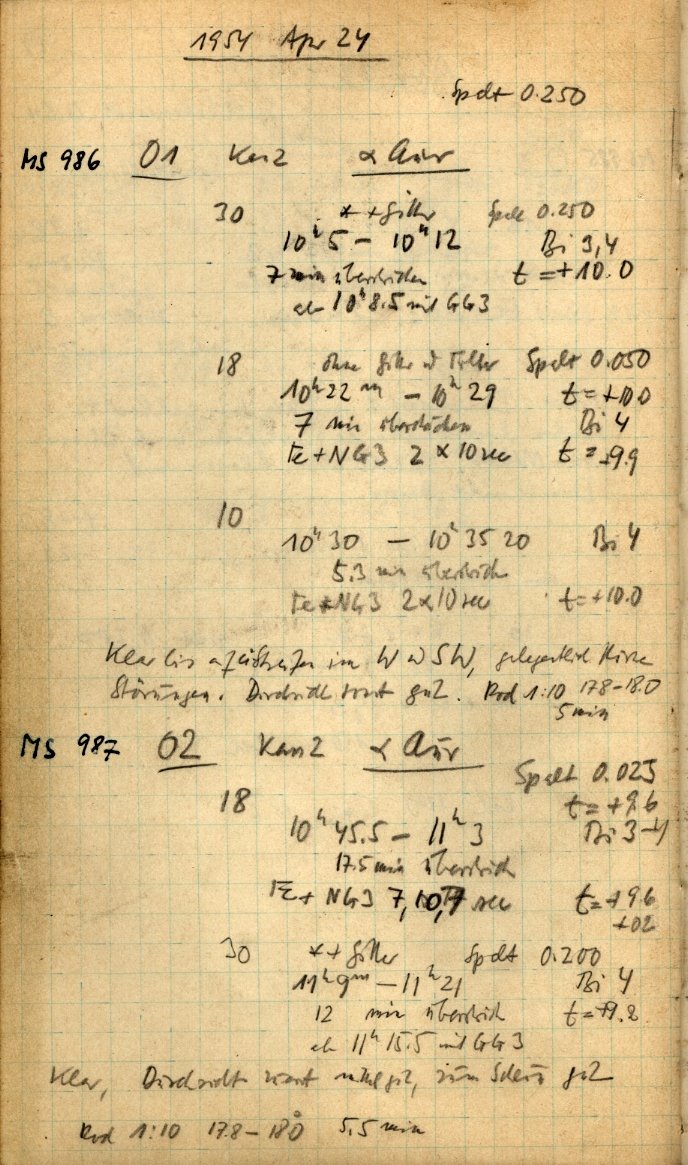 1954 Apr 24
Spalt 0.250
MS 986 O1 Kam 2 α Aur
30 * + Gitter Spalt 0.250
10h 5 – 10h 12 Bi 3,4
7 min überstrichen t = +10.0
ab 10h 8.5 mit GG3
18 ohne Gitter Spalt 0.050
10h 22m – 10h 29 t = +10.0
7 min überstrichen Bi 4
Fe + NG3 2 × 10 sec t = +9.9
10
10h 30 – 10h 35 20 Bi 4
5.3 min überstrich
Fe + NG3 2 × 10 sec t = +10.0
Klar bis auf im W SW, gelegentlich
Störungen. Durchsicht sonst gut. Rod 1:10 17.8–18.0
5 min
MS 987 O2 Kam 2 α Aur
Spalt 0.025
18 t = +9.6
10h 45.5 – 11h 3 Bi 3–4
17.5 min überstrich
Fe + NG3 7, 10, sec t = +9.6
+02
30 * + Gitter Spalt 0.200
11h 9m – 11h 21 Bi 4
12 min überstrich t = +9.2
ab 11h 15.5 mit GG3
Klar, Durchsicht gut, zum Schluß gut
Rod 1:10 17.8 – 18.0 5.5 min